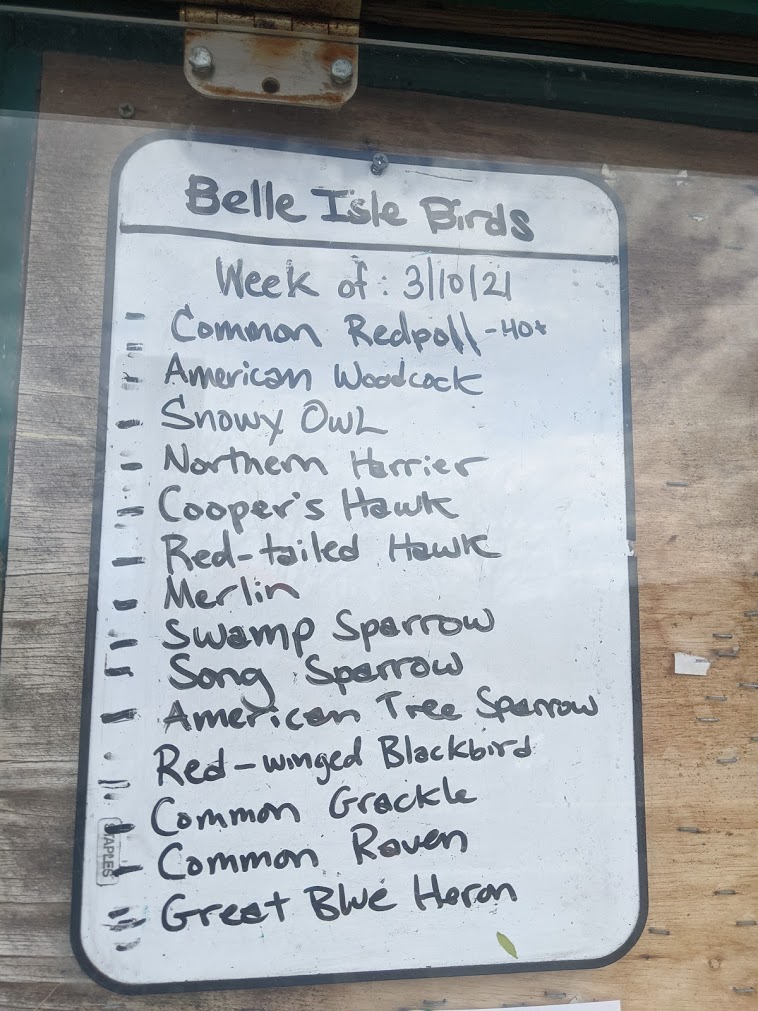 Belle Isle Birds
Week of: 3/10/21
- Common Redpoll - 40+
- American Woodcock
- Snowy Owl
- Northern Harrier
- Cooper's Hawk
- Red-tailed Hawk
- Merlin
- Swamp Sparrow
- Song Sparrow
- American Tree Sparrow
- Red-winged Blackbird
- Common Grackle
- Common Raven
- Great Blue Heron
STAPLES